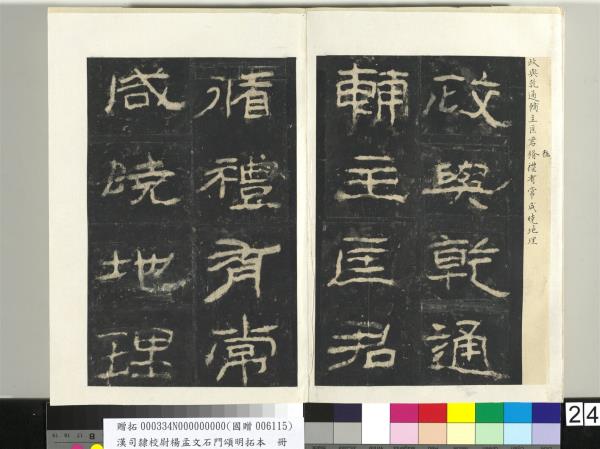 政與乾通
輔主匡君
循禮有常
咸曉地理
政與乾通輔主匡君循禮有常咸曉地理
贈拓 000334N000000000(國贈 006115)
漢司隸校尉楊孟文石門頌明拓本 冊
24
8